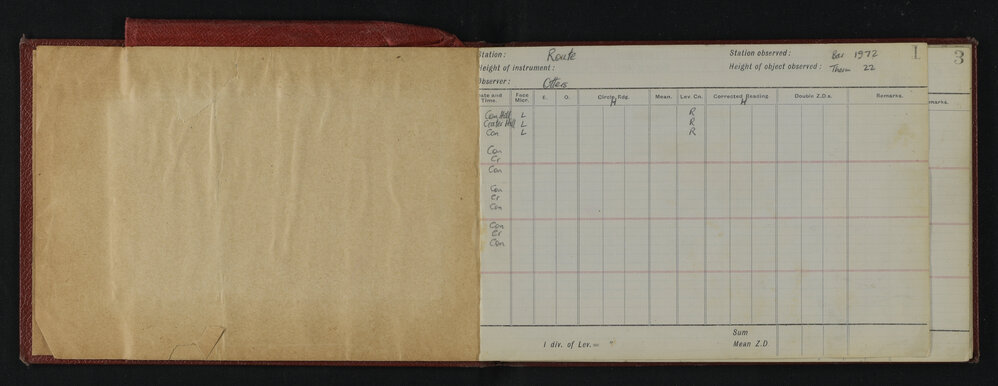 Station: Route Station observed: Bar 1972 1 3
Height of instrument: Height of object observed: Therm 22
Observer: Otters
Date and Time. Face Micr. E. O. Circle Rdg. Mean. Lev. Co. Corrected Reading Double Z.D.s. Remarks. emarks.
H H
Con Hill L R
Crater Hill L R
Con L R
Con
Cr
Con
Con
Cr
Con
Con
Cr
Con
Sum
1 div. of Lev.= " Mean Z.D.